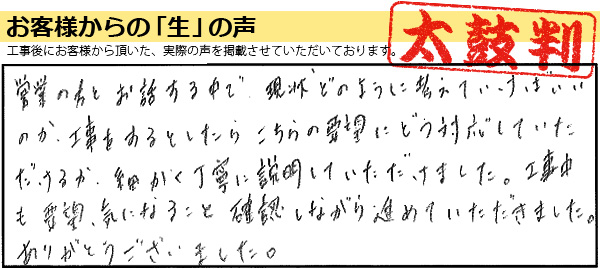 お客様からの「生」の声
太鼓判
工事後にお客様から頂いた、実際の声を掲載させていただいております。
営業の方とお話する中で、現状どのように整えていけばいい
のか、工事をするとしたら こちらの要望にどう対応していた
だけるか、細かく丁寧に説明していただけました。工事中
も 要望、気になること 確認しながら進めていただきました。
ありがとうございました。